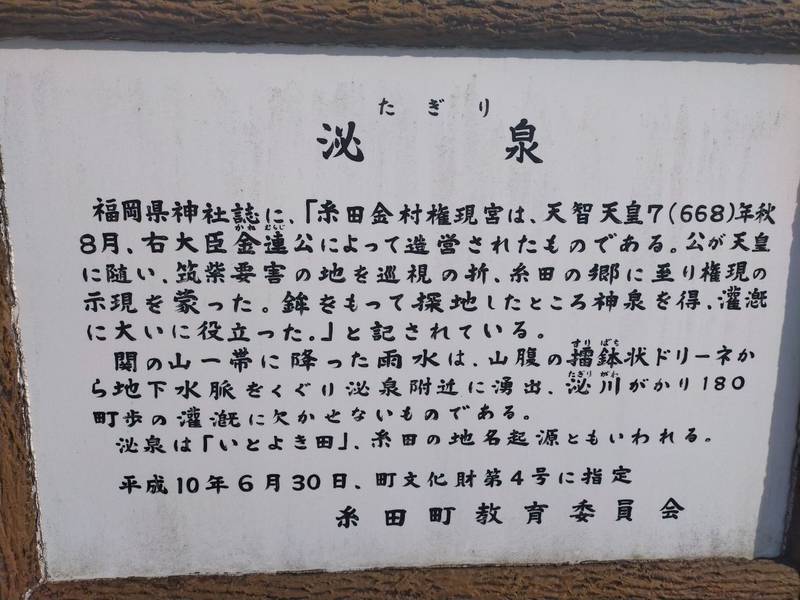 たぎり
泌泉
福岡県神社誌に、「糸田金村権現宮は、天智天皇7(668)年秋
かね むらじ
8月、右大臣金連公によって造営されたものである。公が天皇
に随い、筑紫要害の地を巡視の折、糸田の郷に至り権現の
示現を蒙った。鉾をもって探地したところ神泉を得、灌漑
に大いに役立った。」と記されている。
すり ばち
関の山一帯に降った雨水は、山腹の擂鉢状ドリーネか
たぎり がわ
ら地下水脈をくぐり泌泉附近に湧出、泌川がかり180
町歩の灌漑に欠かせないものである。
泌泉は「いとよき田」、糸田の地名起源ともいわれる。
平成10年6月30日、町文化財第4号に指定
糸田町教育委員会